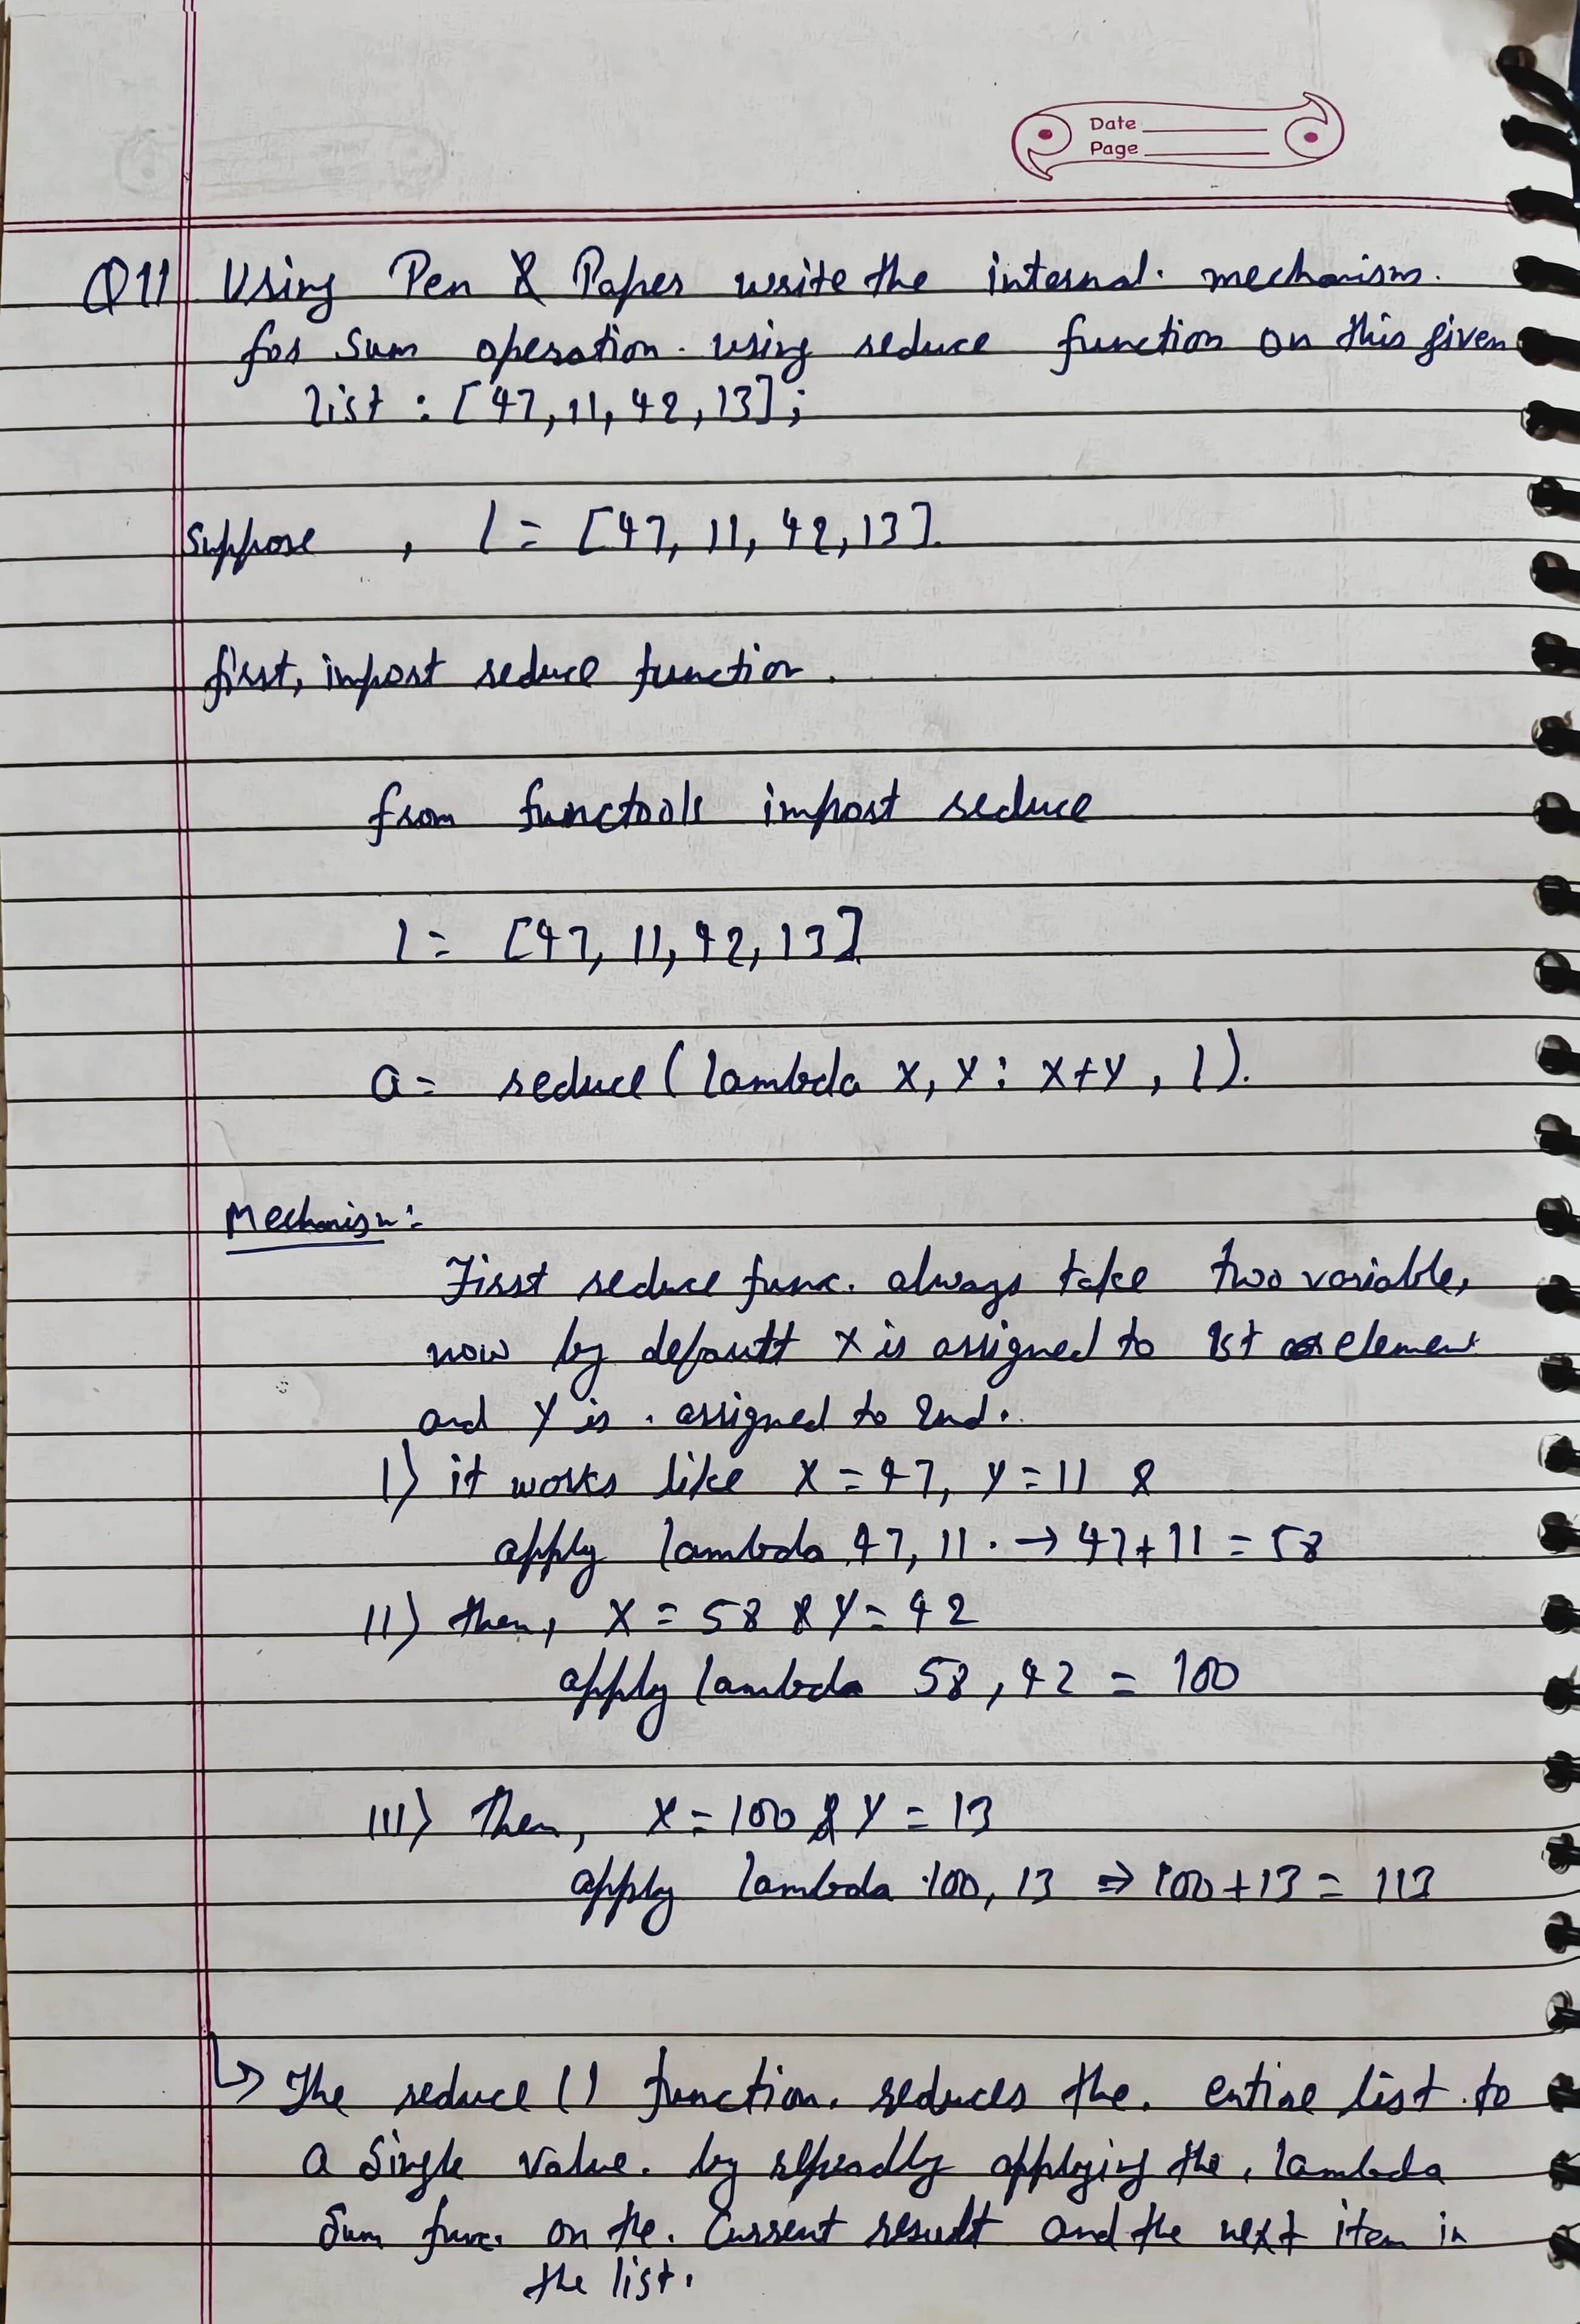 Date
Page
Q11 Using Pen & Paper write the internal. mechanism.
for sum operation. using reduce function on this given
list : [47, 11, 42, 13];
Suppose , l = [47, 11, 42, 13].
first, import reduce function.
from functools import reduce
l = [47, 11, 42, 13]
a = reduce(lambda x, y : x+y , l).
Mechanism:
First reduce func. always take two variable,
now by default x is assigned to 1st element
and y is . assigned to 2nd.
I) it works like x = 47, y = 11 &
apply lambda 47, 11 . → 47+11 = 58
II) then, x = 58 & y = 42
apply lambda 58, 42 = 100
III) Then, x = 100 & y = 13
apply lambda .100, 13 ⇒ 100+13 = 113
↳ The reduce () function. reduces the. entire list. to
a Single value. by applying the, lambda
Sum func. on the. Current result and the next item in
the list.